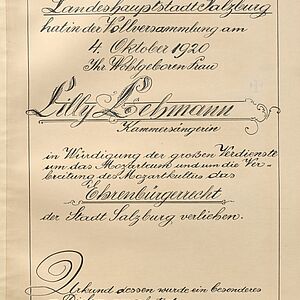 Landeshauptstadt Salzburg
hat in der Vollversammlung am
4. Oktober 1920
Ihr Wohlgeboren Frau
Lilly Lehmann
Kammersängerin
in Würdigung der großen Verdienste
um das Mozarteum und um die Ver-
breitung des Mozartkultus das
Ehrenbürgerrecht
der Stadt Salzburg verliehen.
Urkund dessen wurde ein besonderes